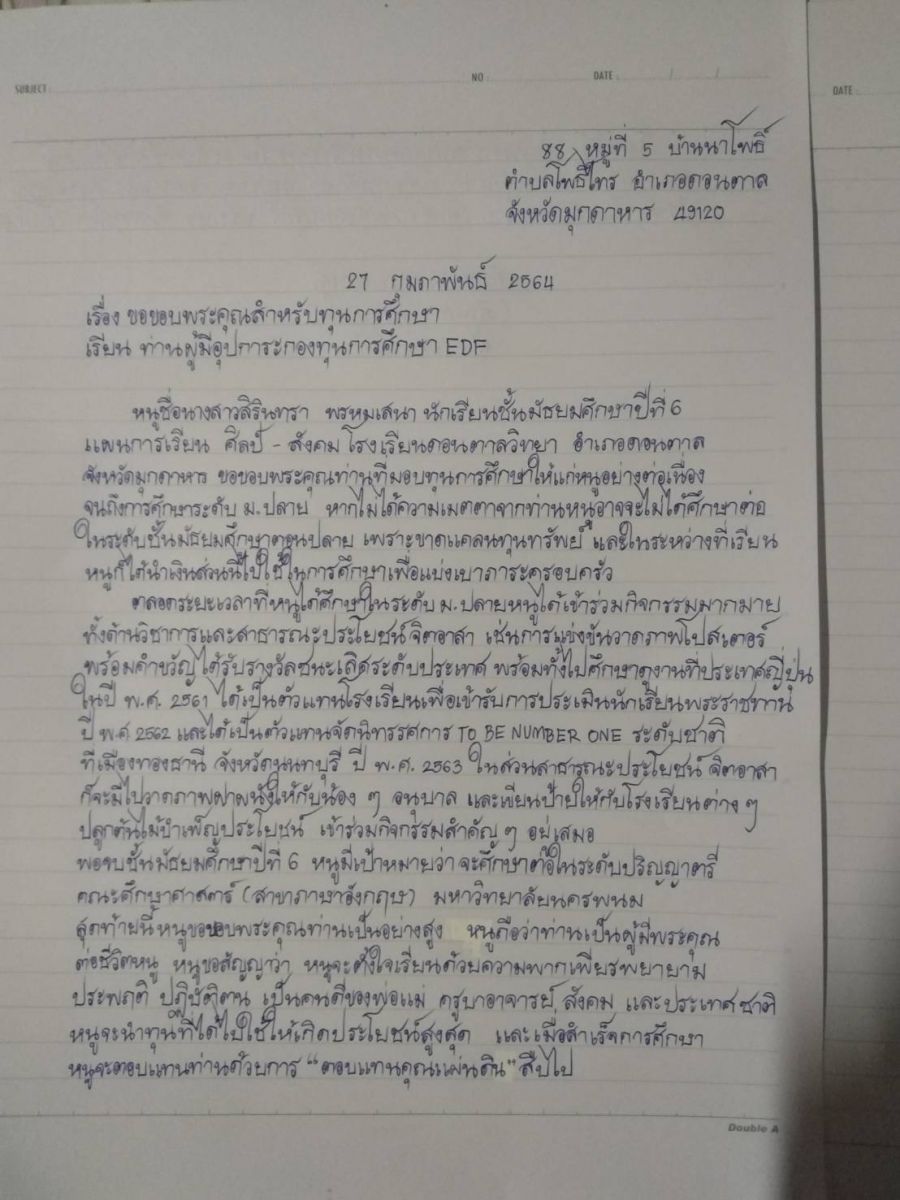 SUBJECT :
NO :
DATE : / /
DATE :
88 หมู่ที่ 5 บ้านนาโพธิ์
ตำบลโพธิ์ไทร อำเภอดอนตาล
จังหวัดมุกดาหาร 49120
27 กุมภาพันธ์ 2564
เรื่อง ขอขอบพระคุณสำหรับทุนการศึกษา
เรียน ท่านผู้มีอุปการะกองทุนการศึกษา EDF
หนูชื่อนางสาวสิรินทรา พรหมเสนา นักเรียนชั้นมัธยมศึกษาปีที่ 6
แผนการเรียน ศิลป์ - สังคม โรงเรียนดอนตาลวิทยา อำเภอดอนตาล
จังหวัดมุกดาหาร ขอขอบพระคุณท่านที่มอบทุนการศึกษาให้แก่หนูอย่างต่อเนื่อง
จนถึงการศึกษาระดับ ม.ปลาย หากไม่ได้ความเมตตาจากท่านหนูอาจจะไม่ได้ศึกษาต่อ
ในระดับชั้นมัธยมศึกษาตอนปลาย เพราะขาดแคลนทุนทรัพย์ และในระหว่างที่เรียน
หนูก็ได้นำเงินส่วนนี้ไปใช้ในการศึกษาเพื่อแบ่งเบาภาระครอบครัว
ตลอดระยะเวลาที่หนูได้ศึกษาในระดับ ม.ปลายหนูได้เข้าร่วมกิจกรรมมากมาย
ทั้งด้านวิชาการและสาธารณะประโยชน์จิตอาสา เช่นการแข่งขันวาดภาพโปสเตอร์
พร้อมคำขวัญได้รับรางวัลชนะเลิศระดับประเทศ พร้อมทั้งไปศึกษาดูงานที่ประเทศญี่ปุ่น
ในปี พ.ศ. 2561 ได้เป็นตัวแทนโรงเรียนเพื่อเข้ารับการประเมินนักเรียนพระราชทาน
ปี พ.ศ 2562 และได้เป็นตัวแทนจัดนิทรรศการ TO BE NUMBER ONE ระดับชาติ
ที่เมืองทองธานี จังหวัดนนทบุรี ปี พ.ศ. 2563 ในส่วนสาธารณะประโยชน์จิตอาสา
ก็จะมีไปวาดภาพฝาผนังให้กับน้อง ๆ อนุบาล และเขียนป้ายให้กับโรงเรียนต่าง ๆ
ปลูกต้นไม้บำเพ็ญประโยชน์ เข้าร่วมกิจกรรมสำคัญ ๆ อยู่เสมอ
พอจบชั้นมัธยมศึกษาปีที่ 6 หนูมีเป้าหมายว่า จะศึกษาต่อในระดับปริญญาตรี
คณะศึกษาศาสตร์ (สาขาภาษาอังกฤษ) มหาวิทยาลัยนครพนม
สุดท้ายนี้ หนูขอขอบพระคุณท่านเป็นอย่างสูง หนูถือว่าท่านเป็นผู้มีพระคุณ
ต่อชีวิตหนู หนูขอสัญญาว่า หนูจะตั้งใจเรียนด้วยความพากเพียรพยายาม
ประพฤติ ปฏิบัติตน เป็นคนดีของพ่อแม่ ครูบาอาจารย์ สังคม และประเทศชาติ
หนูจะนำทุนที่ได้ไปใช้ให้เกิดประโยชน์สูงสุด และเมื่อสำเร็จการศึกษา
หนูจะตอบแทนท่านด้วยการ "ตอบแทนคุณแผ่นดิน" สืบไป
Double A